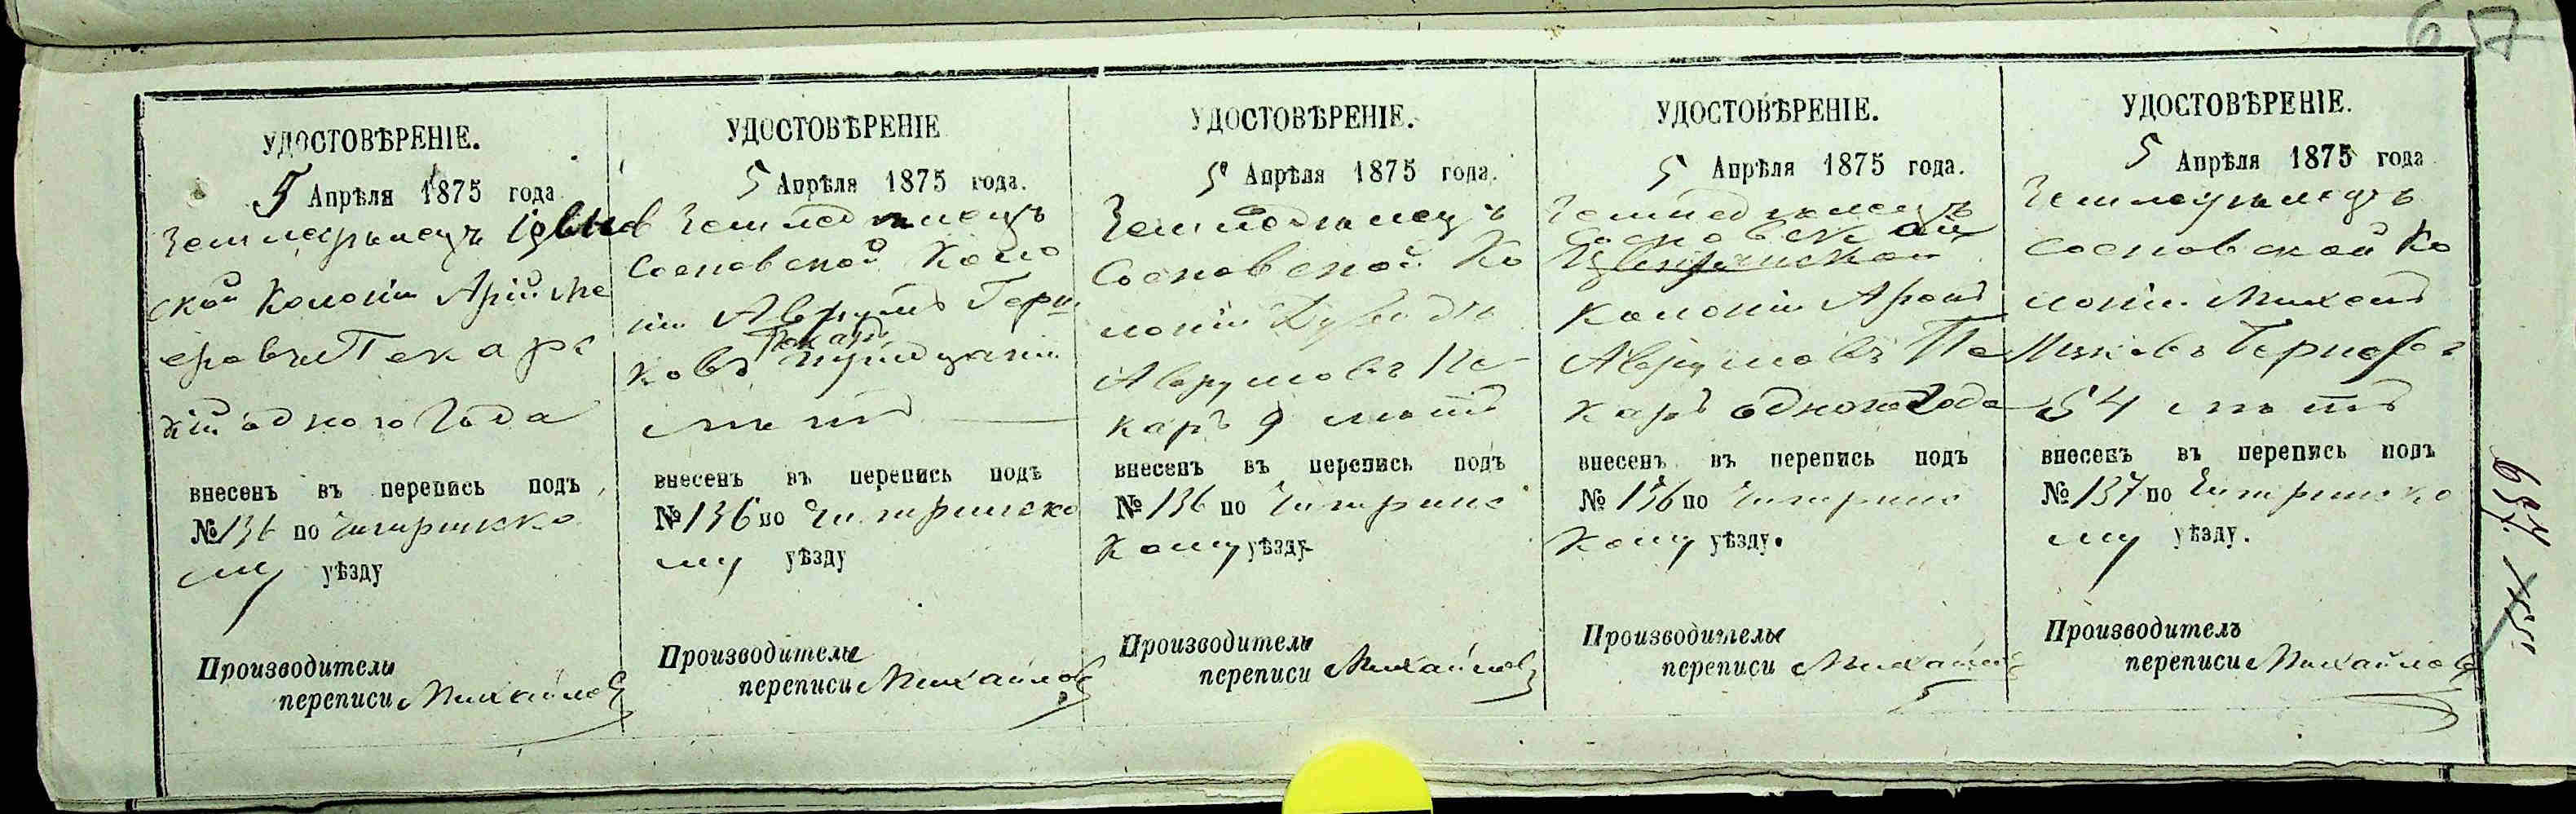 657
УДОСТОВѢРЕНІЕ.
5 Апрѣля 1875 года
Земледѣлецъ
ской Колоніи
одного Года
внесенъ въ перепись подъ
№ 136 по Чигиринско
му уѣзду
Производитель
переписи Михайловъ
УДОСТОВѢРЕНІЕ
5 Апрѣля 1875 года.
Земледѣлецъ
Сосновской Коло
ніи Аврумъ Герш
Пекарь
ковъ тридцати
лѣтъ
внесенъ въ перепись подъ
№ 136 по Чигиринско
му уѣзду
Производитель
переписи Михайловъ
УДОСТОВѢРЕНІЕ.
5 Апрѣля 1875 года.
Земледѣлецъ
Сосновской Ко
лоніи
Аврумовъ Пе
каръ 9 лѣтъ
внесенъ въ перепись подъ
№ 136 по Чигиринс
кому уѣзду
Производитель
переписи Михайловъ
УДОСТОВѢРЕНІЕ.
5 Апрѣля 1875 года.
Земледѣлецъ
Сосновской
Колоніи Аронъ
Аврумовъ Пе
каръ одного Года
внесенъ въ перепись подъ
№ 136 по Чигиринс
кому уѣзду.
Производитель
переписи Михайловъ
УДОСТОВѢРЕНІЕ.
5 Апрѣля 1875 года
Земледѣлецъ
Сосновской Ко
лоніи
54 лѣтъ
внесенъ въ перепись подъ
№ 137 по Чигиринско
му уѣзду.
Производитель
переписи Михайловъ